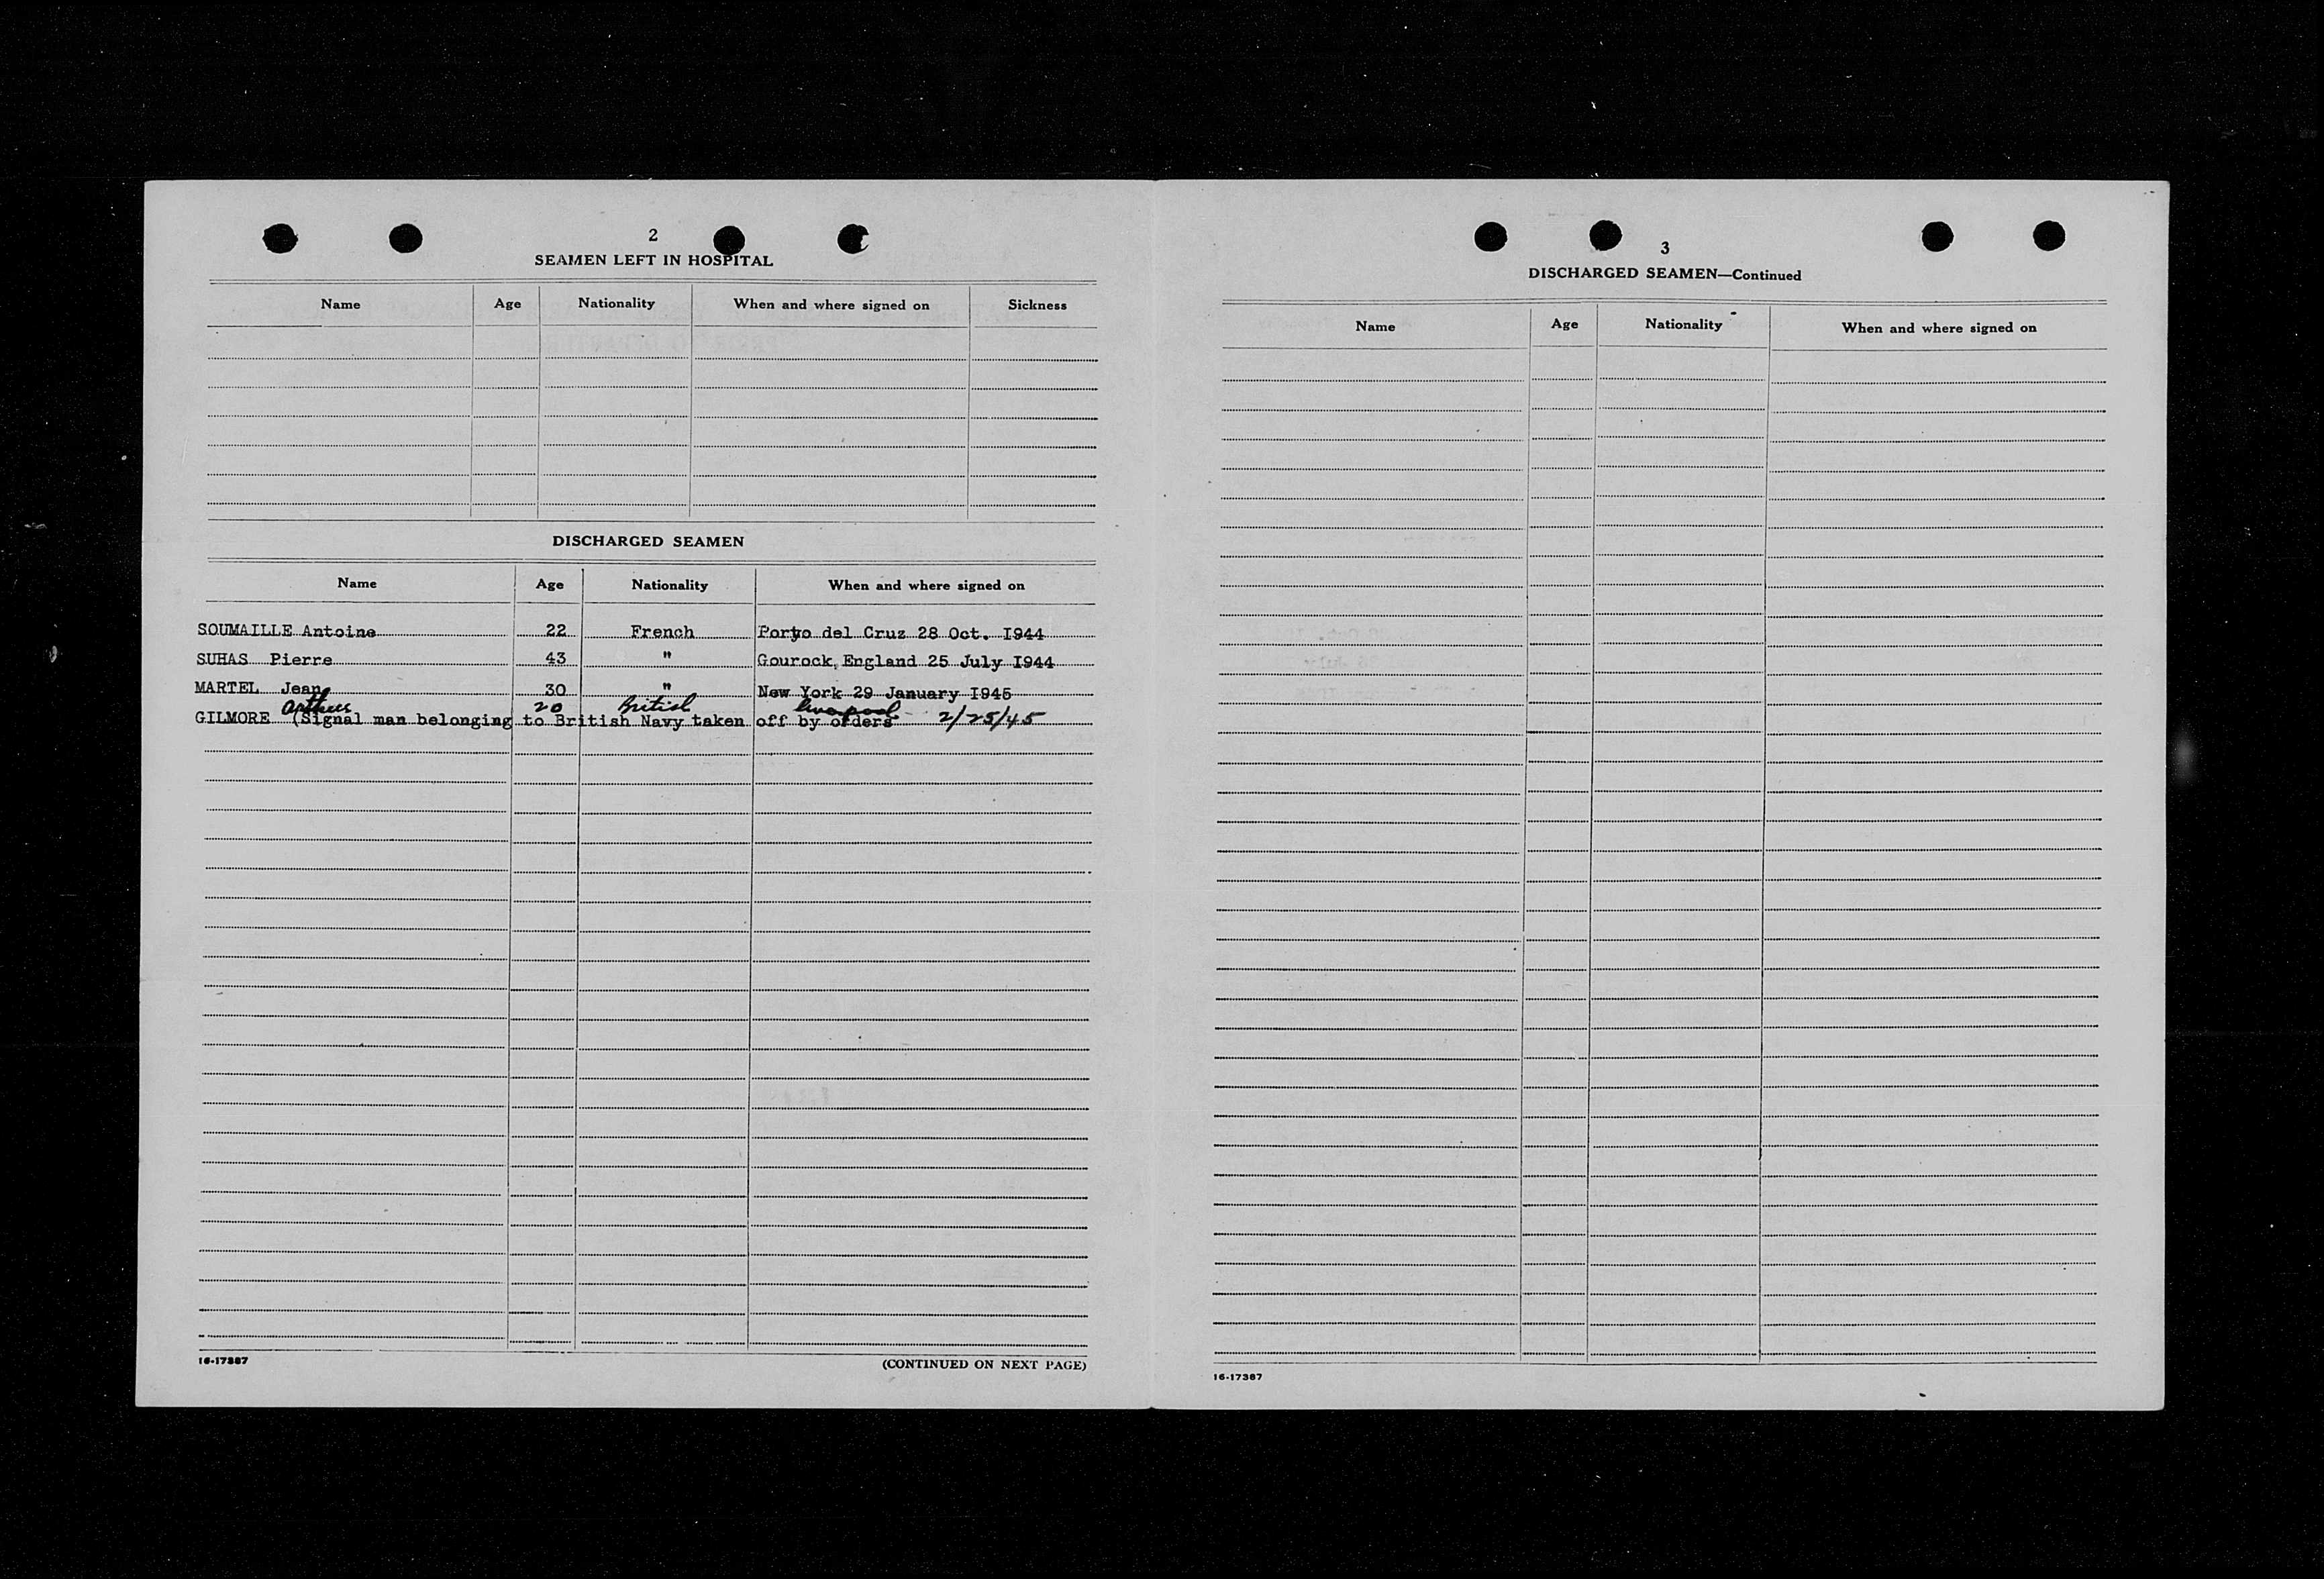 2
SEAMEN LEFT IN HOSPITAL
Name Age Nationality When and where signed on Sickness
DISCHARGED SEAMEN
Name Age Nationality When and where signed on
SOUMAILLE Antoine 22 French Porto del Cruz 28 Oct. I944
SUHAS Pierre 43 " Gourock, England 25 July I944
MARTEL Jean 30 " New York 29 January I945
Arthur 20 British Liverpool - 2/25/45
GILMORE (Signal man belonging to British Navy taken off by orders
16-17387
(CONTINUED ON NEXT PAGE)
3
DISCHARGED SEAMEN—Continued
Name Age Nationality When and where signed on
16-17387